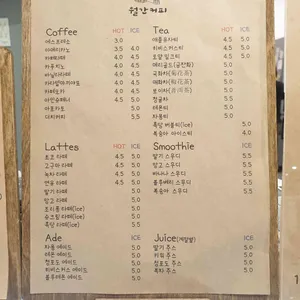 월간커피
Coffee HOT ICE
에스프레소 3.0
아메리카노 3.5 4.0
카페라떼 4.0 4.5
카푸치노 4.0 4.5
바닐라라떼 4.0 4.5
카라멜마끼아또 4.0 4.5
카페모카 4.0 4.5
아인슈페너 4.5 5.0
아포가토 5.0
더치커피 5.5
Lattes HOT ICE
초코 라떼 4.5 5.0
고구마 라떼 4.5 5.0
녹차 라떼 4.5 5.0
연유 라떼 4.5 5.0
딸기 라떼 5.0
망고 라떼 5.0
오리콩 라떼(ice) 5.0
슈크림 라떼(ice) 5.0
흑당 라떼(ice) 5.0
Ade ICE
자몽 에이드 5.0
레몬 에이드 5.0
청포도 에이드 5.0
체리에이드 5.0
블루레몬 에이드 5.0
Tea HOT ICE
애플유자티 4.5 5.0
자비스커스티 4.5 5.0
로얄 밀크티 4.5 5.0
5.0
5.0
5.0
청귤차 5.5
레몬티 5.0
자몽티 5.0
흑당 버블티(ice) 5.0
복숭아 아이스티 4.0
Smoothie ICE
딸기 스무디 5.5
망고 스무디 5.5
바나나 스무디 5.5
블루베리 스무디 5.5
복숭아 스무디 5.5
Juice ICE
딸기 주스 5.0
키위 주스 5.0
청포도 주스 5.0
5.0